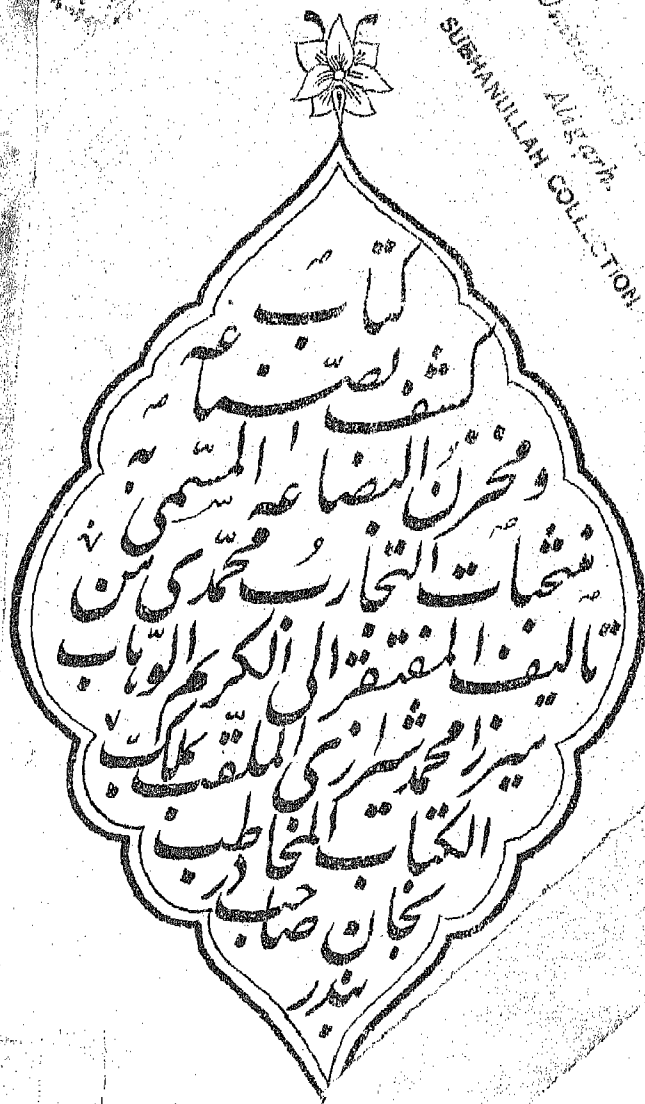 SUBHANULLAH COLLECTION
Aligarh.
کتاب
کشف الصّناعه
و مخزنُ البضاعه المسّمی به
منتخبات التجاربُ محمّدی من
تالیف المفتقر الی الکریم الوّهاب
میرزا محمد شیرازی الملقّب بملک
الکتّاب المخاطب
بخان صاحب در
بندر